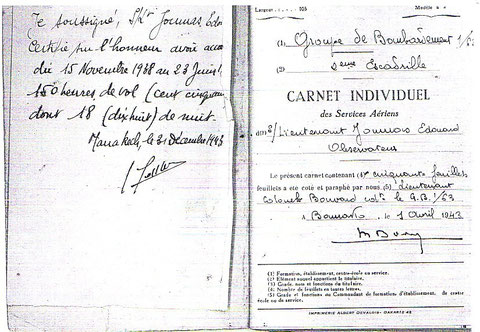 Je soussigné, S/Lt Joumas Edo
Certifie sur l'honneur avoir acco
du 15 Novembre 1938 au 23 Juin
150 heures de vol (cent cinquan
dont 18 (dix huit) de nuit.
Marrakech, le 31 Decembre 1943
Modèle
(1) Groupe de Bombardement 1/63
(2) 2eme Escadrille
CARNET INDIVIDUEL
des Services Aériens
du (3) S/Lieutenant Joumas Edouard
Observateur
Le présent carnet contenant (4) cinquante feuilles
feuillets a été coté et paraphé par nous (5) Lieutenant
Colonel Bouvard cdt le G.B. 1/63
A Bamako le 1 Avril 1943
(1) Formation, établissement, centre-école ou service.
(2) Elément auquel appartient le titulaire.
(3) Grade, nom et fonctions du titulaire.
(4) Nombre de feuillets en toutes lettres.
(5) Grade et fonctions du Commandant de formation, d'établissement, de centre
école ou de service.
IMPRIMERIE ALBERT DUVALOIS - DAKAR